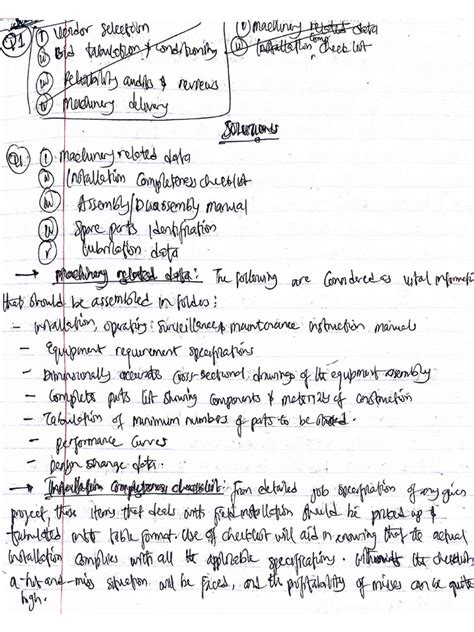 Q1 (i) Vendor selection
(ii) Bid tabulation & conditioning
(iii) Reliability audits & reviews
(iv) Machinery delivery
(i) machinery related data
(ii) Installation comp checklist
Solutions
Q1 (i) machinery related data
(ii) Installation Completeness checklist
(iii) Assembly/Disassembly manual
(iv) Spare parts Identification
(v) Lubrication data
→ Machinery related data: The following are Considered as vital information
that should be assembled in folders:
- installation, operating, surveillance & maintenance instruction manuals
- Equipment requirement specifications
- Dimensionally accurate cross-sectional drawings of the equipment assembly
- Complete parts list showing components & materials of construction
- Tabulation of minimum numbers of parts to be
- performance Curves
- Design change data.
→ Installation Completeness checklist: From detailed job specification of any given
project, those items that deals with field installation should be picked up &
tabulated into table format. Use of checklist will aid in ensuring that the actual
installation complies with all the applicable specifications. Without the checklists
a-hit-and-miss situation will be faced, and the probability of misses can be quite
high.